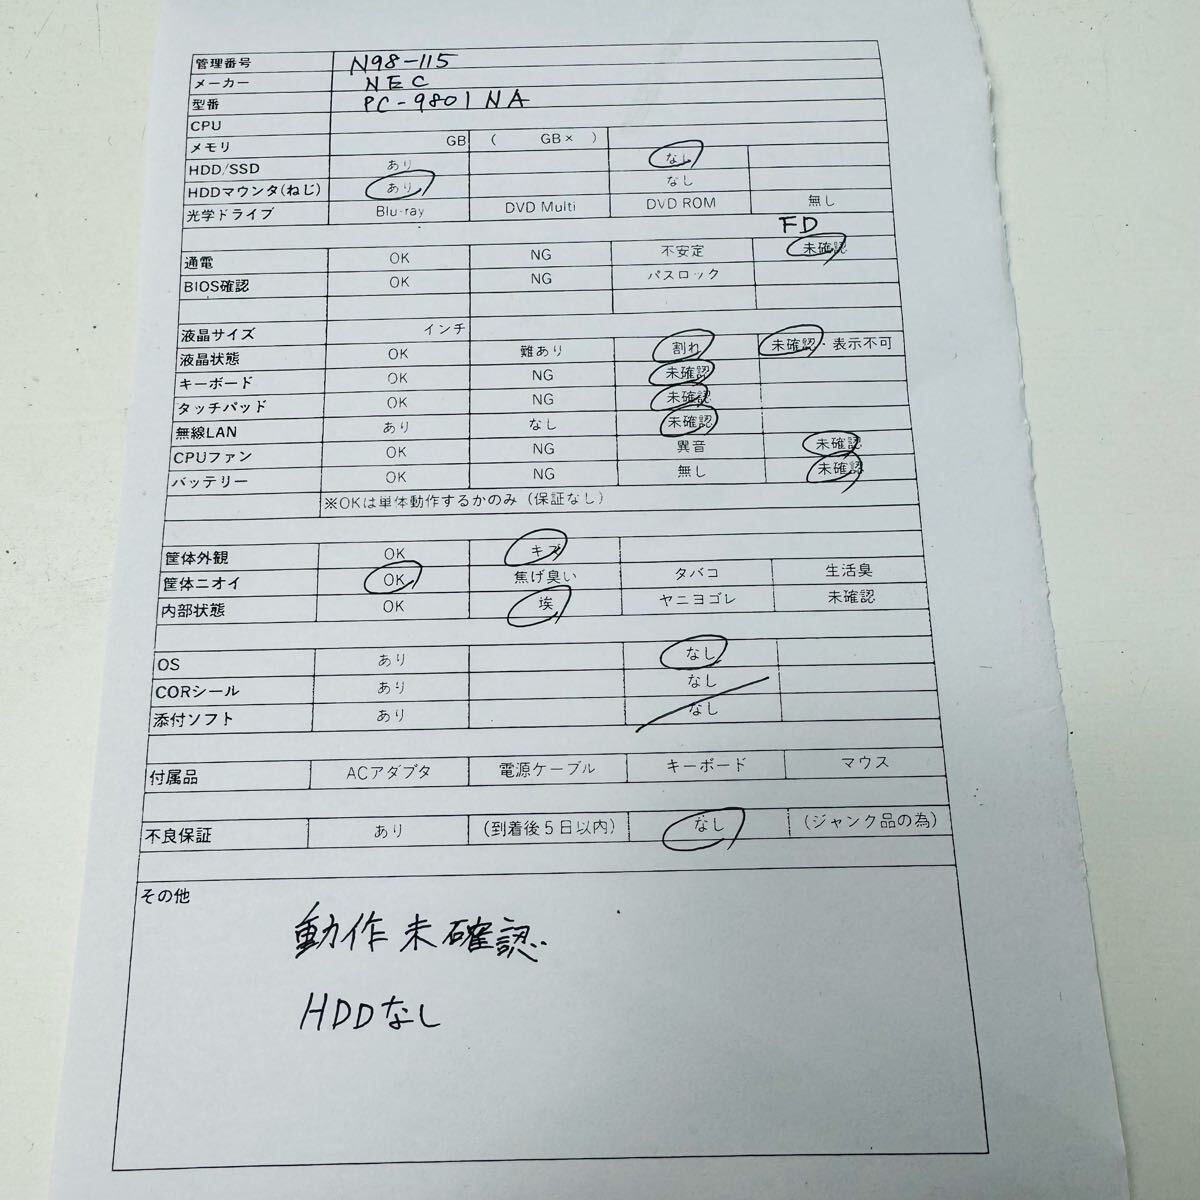 管理番号 N98-115
メーカー NEC
型番 PC-9801NA
CPU
メモリ GB ( GB× )
HDD/SSD あり なし
HDDマウンタ(ねじ) あり なし
光学ドライブ Blu-ray DVD Multi DVD ROM 無し
FD
通電 OK NG 不安定 未確認
BIOS確認 OK NG パスロック
液晶サイズ インチ
液晶状態 OK 難あり 割れ 未確認・表示不可
キーボード OK NG 未確認
タッチパッド OK NG 未確認
無線LAN あり なし 未確認
CPUファン OK NG 異音 未確認
バッテリー OK NG 無し 未確認
※OKは単体動作するかのみ（保証なし）
筐体外観 OK キズ
筐体ニオイ OK 焦げ臭い タバコ 生活臭
内部状態 OK 埃 ヤニヨゴレ 未確認
OS あり なし
CORシール あり なし
添付ソフト あり なし
付属品 ACアダプタ 電源ケーブル キーボード マウス
不良保証 あり (到着後５日以内) なし (ジャンク品の為)
その他
動作未確認
HDDなし